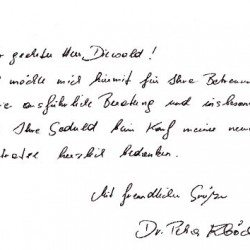 geehrter Herr Diewald!
möchte mich hiermit für Ihre Betreuung
ausführliche Beratung und insbeson
Ihre Geduld beim Kauf meiner neuen
herzlich bedanken.
Mit freundlichen Grüßen
Dr. Petra